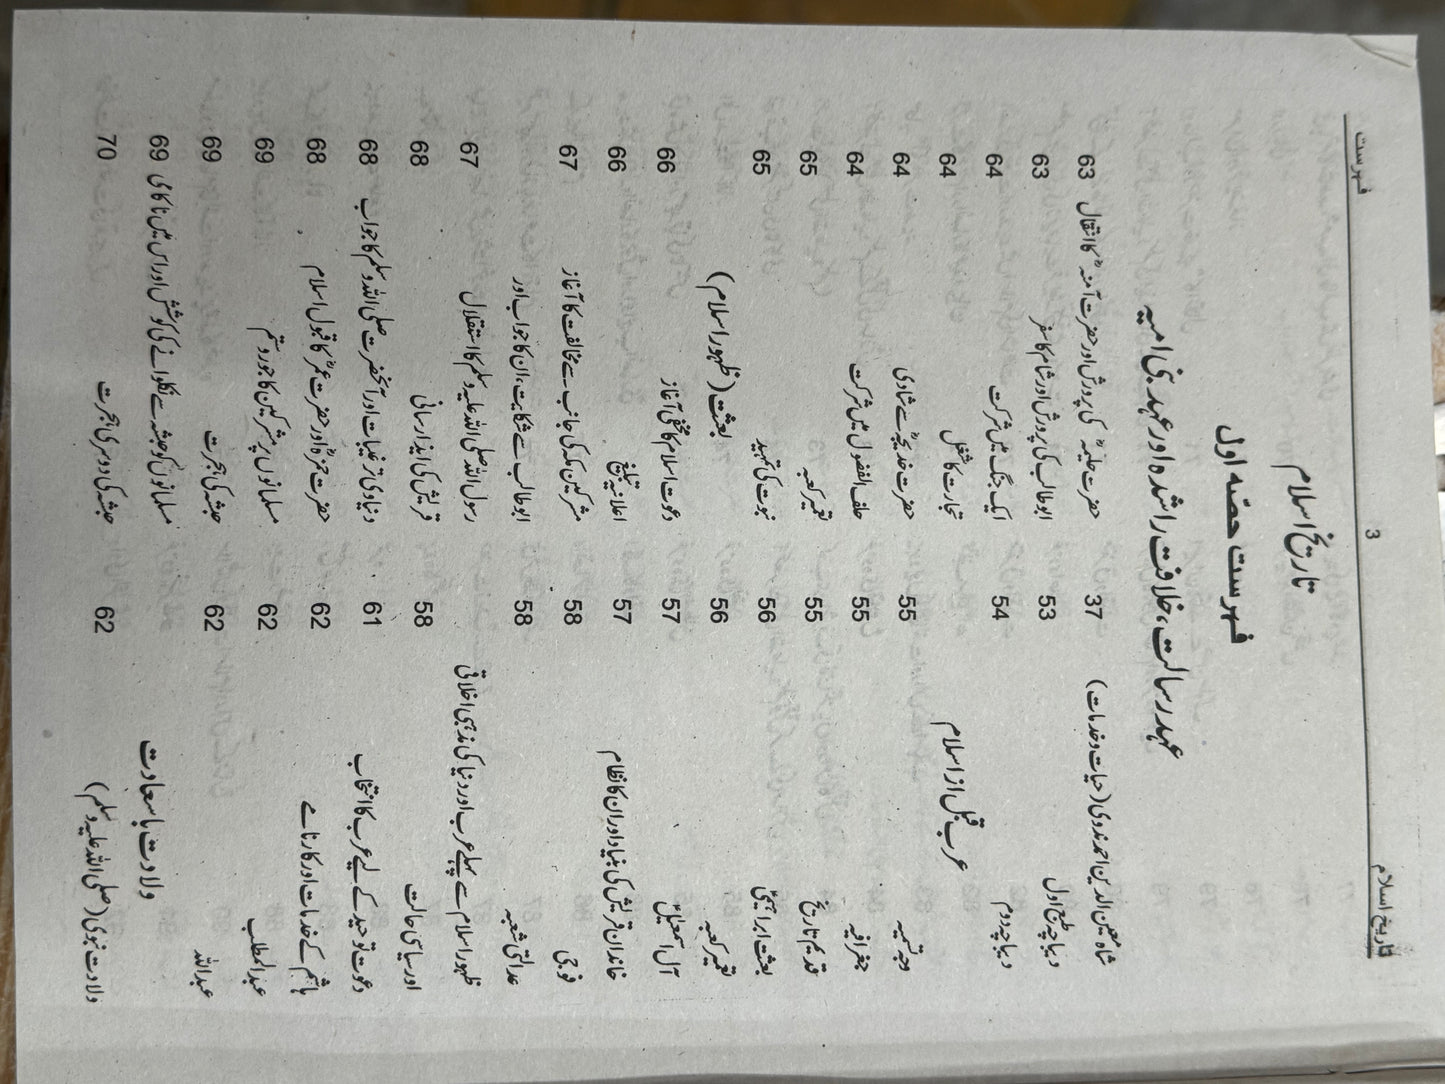 تاریخ اسلام
3
فہرست
تاریخ اسلام
فہرست حصّہ اول
عہد رسالت، خلافت راشدہ اور عہد بنی امیہ
شاہ معین الدین احمد ندوی (حیات و خدمات) 37
دیباچہ طبع اول 53
دیباچہ دوم 54
عرب قبل از اسلام
وجہ تسمیہ 55
جغرافیہ 55
قدیم تاریخ 55
بعثت ابراہیمیؑ 56
تعمیر کعبہ 56
آل اسمعیلؑ 57
خاندان قریش کی بنیاد اور ان کا نظام 57
فوجی 58
عدالتی شعبہ 58
ظہور اسلام سے پہلے عرب اور دنیا کی مذہبی اخلاقی
اور سیاسی حالت 58
دعوت توحید کے لیے عرب کا انتخاب 61
ہاشم کے خدمات اور کارنامے 62
عبدالمطلب 62
عبداللہ 62
ولادت باسعادت
ولادت نبوی (صلی اللہ علیہ وسلم) 62
حضرت حلیمہؓ کی پرورش اور حضرت آمنہؓ کا انتقال 63
ابوطالب کی پرورش اور شام کا سفر 63
ایک جنگ میں شرکت 64
تجارت کا شغل 64
حضرت خدیجہؓ سے شادی 64
حلف الفضول میں شرکت 64
تعمیر کعبہ 65
نبوت کی تمہید 65
بعثت (ظہور اسلام)
دعوت اسلام کا مخفی آغاز 66
اعلانیہ تبلیغ 66
مشرکین مکہ کی جانب سے مخالفت کا آغاز 67
ابوطالب سے شکایت، ان کا جواب اور
رسول اللہ صلی اللہ علیہ وسلم کا استقلال 67
قریش کی ایذا رسانی 68
دنیاوی ترغیبات اور آنحضرت صلی اللہ وسلم کا جواب 68
حضرت حمزہؓ اور حضرت عمرؓ کا قبول اسلام 68
مسلمانوں پر مشرکین کا جور و ستم 69
حبشہ کی ہجرت 69
مسلمانوں کو حبشہ سے نکلوانے کی کوشش اور اس میں ناکامی 69
حبشہ کی دوسری ہجرت 70